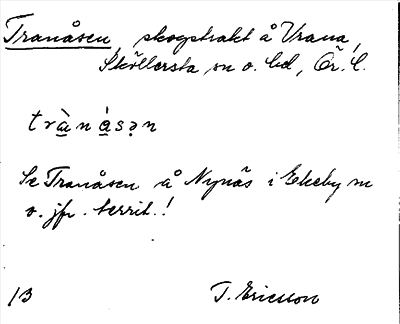 Tranåsen, skogstrakt å Vrana,
Sköllersta sn o. hd, Ör. l.
trà̱ná̱sən
Se Tranåsen å Nynäs i Ekeby sn
o. jfr. territ.!
/3 T. Ericsson